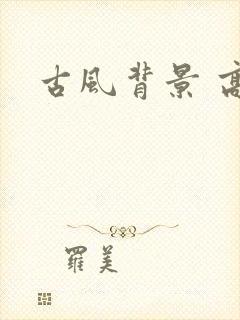 古風背景 高
羅美